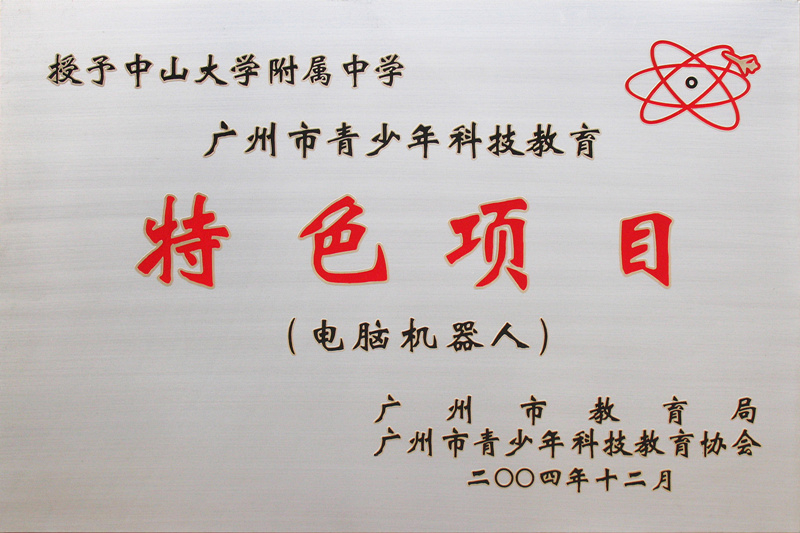 授予中山大学附属中学
广州市青少年科技教育
特色项目
（电脑机器人）
广州市教育局
广州市青少年科技教育协会
二〇〇四年十二月